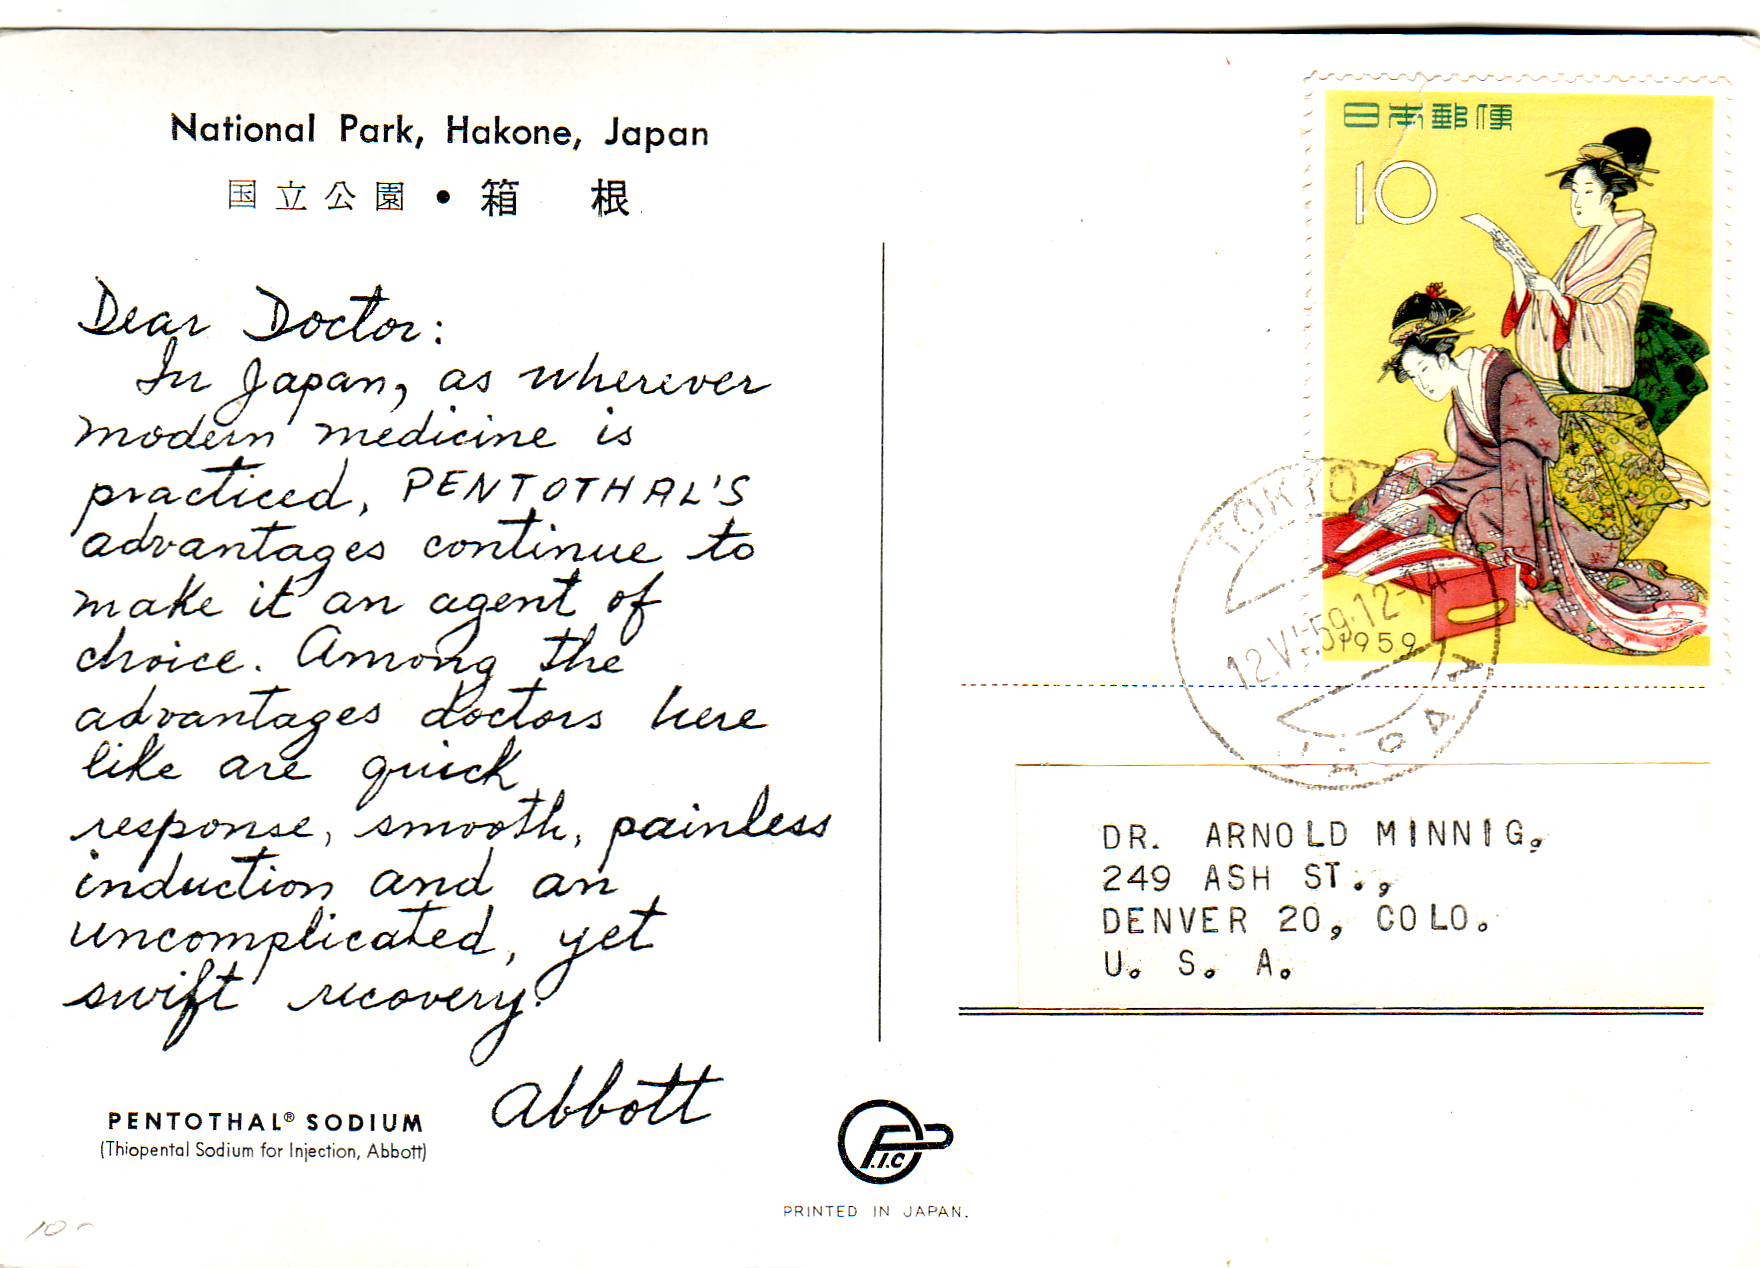 National Park, Hakone, Japan
国立公園・箱 根
Dear Doctor:
In Japan, as wherever
modern medicine is
practiced, PENTOTHAL'S
advantages continue to
make it an agent of
choice. Among the
advantages doctors here
like are quick
response, smooth, painless
induction and an
uncomplicated, yet
swift recovery.
Abbott
PENTOTHAL® SODIUM
(Thiopental Sodium for Injection, Abbott)
10-
P.I.C
PRINTED IN JAPAN.
日本郵便
10
1959
TOKYO
12.VI.59.12-14
DR. ARNOLD MINNIG,
249 ASH ST.,
DENVER 20, COLO.
U. S. A.